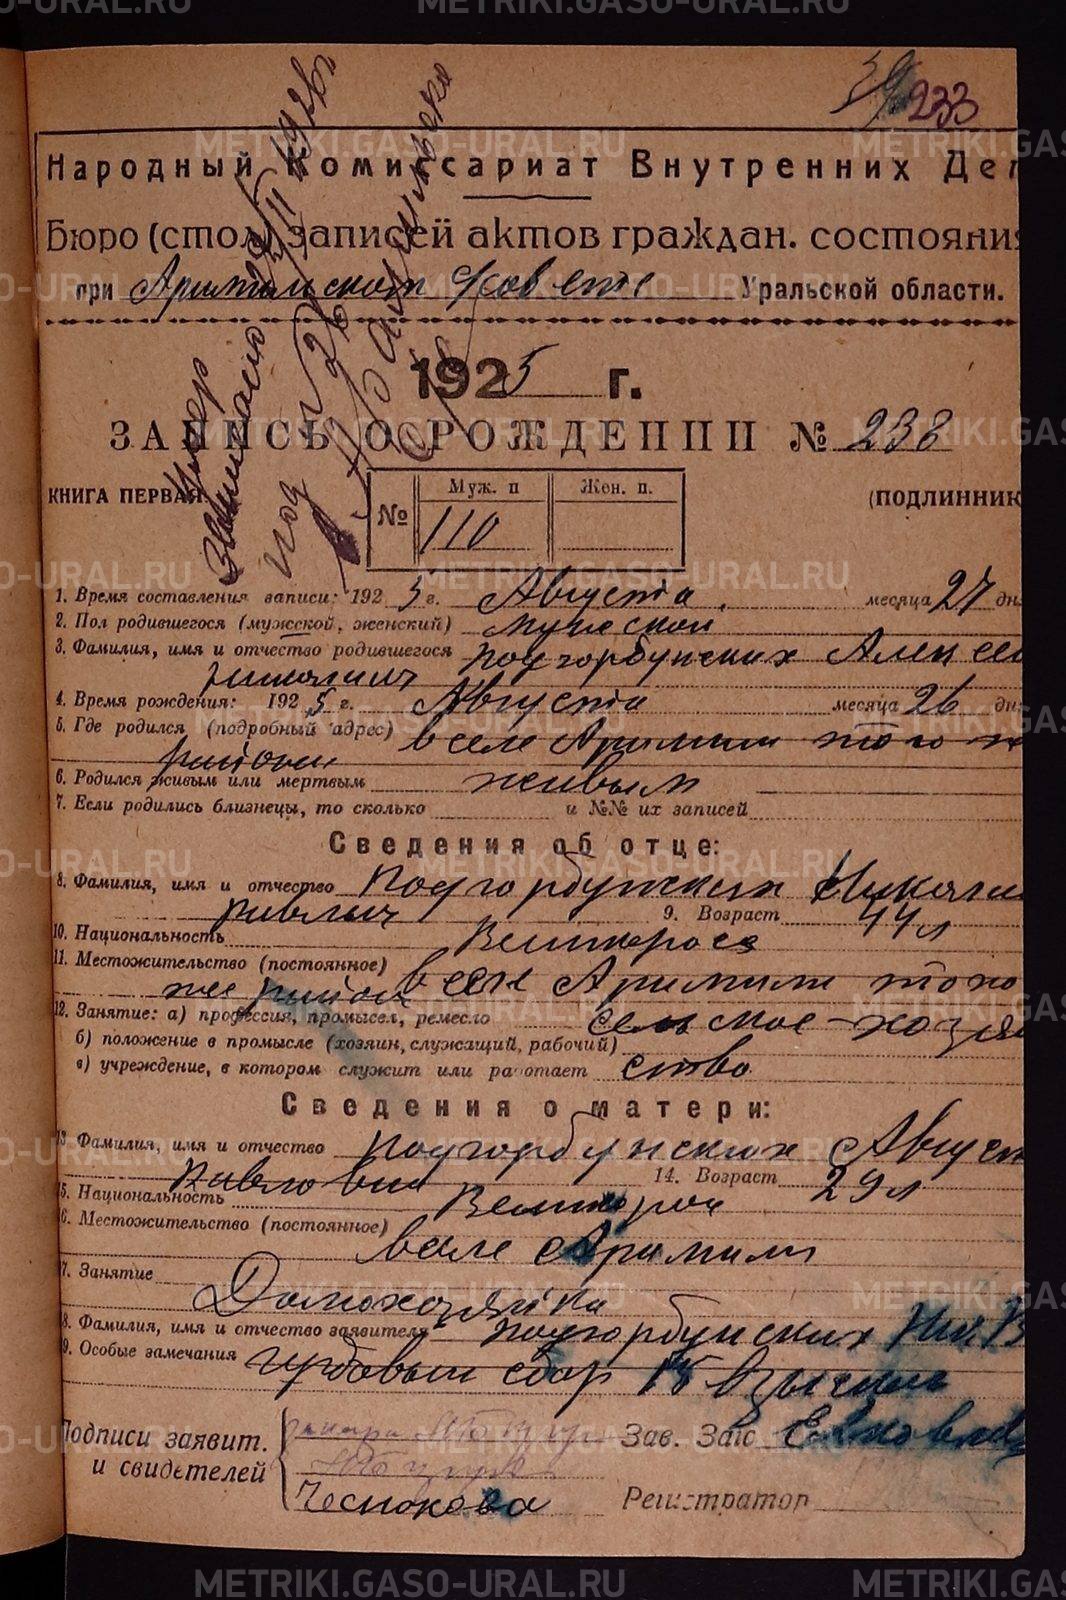 39 233
Народный Комиссариат Внутренних Дел
Бюро (стол) записей актов граждан. состояния
при Арамильском Уральской области.
1925 г.
ЗАПИСЬ О РОЖДЕНИИ № 238
КНИГА ПЕРВАЯ. (ПОДЛИННИК
№ Муж. п Жен. п.
110
Умер
под № 26
1. Время составления записи: 1925 г. Августа месяца 27 дн
2. Пол родившегося (мужской, женский) мужской
3. Фамилия, имя и отчество родившегося Подгорбунских Алексей
4. Время рождения: 1925 г. Августа месяца 26 дн
5. Где родился (подробный адрес) в селе Арамили того ж
района
6. Родился живым или мертвым живым
7. Если родились близнецы, то сколько и №№ их записей
Сведения об отце:
8. Фамилия, имя и отчество Подгорбунских Николай
9. Возраст 44 л
10. Национальность Великоросс
11. Местожительство (постоянное) в селе Арамили того
же района
12. Занятие: а) профессия, промысел, ремесло сельское-хозяй
б) положение в промысле (хозяин, служащий, рабочий)
в) учреждение, в котором служит или работает ство
Сведения о матери:
13. Фамилия, имя и отчество Подгорбунских Август
Павловна 14. Возраст 29 л
15. Национальность Великорос
6. Местожительство (постоянное) в селе Арамили
7. Занятие Домохозяйка
8. Фамилия, имя и отчество заявителя Подгорбунских
9. Особые замечания гербовый сбор
Подписи заявит.
и свидетелей Чеснокова
Зав. Заг
Регистратор
METRIKI.GASO-URAL.RU